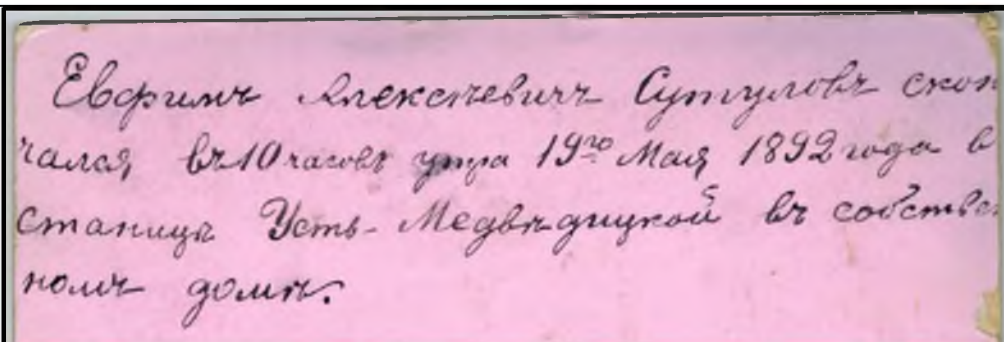 Евфимъ Алексѣевичъ Сутуловъ скон
чался, въ 10 часовъ утра 19го Мая 1892 года в
станицѣ Усть-Медвѣдицкой въ собствен
номъ домѣ.